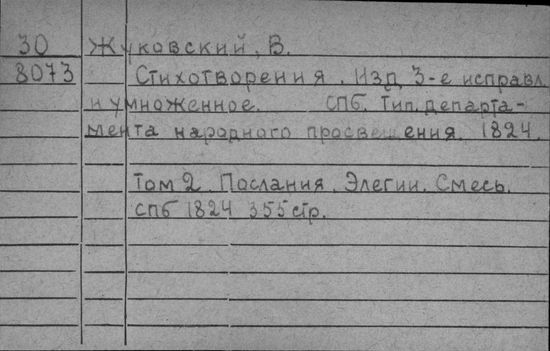 30 Жуковский, В.
8073 Стихотворения. Изд 3-е исправл
и умноженное. СПб. Тип. департа-
мента народного просвещения. 1824.
Том 2. Послания. Элегии. Смесь.
СПб 1824 355 стр.